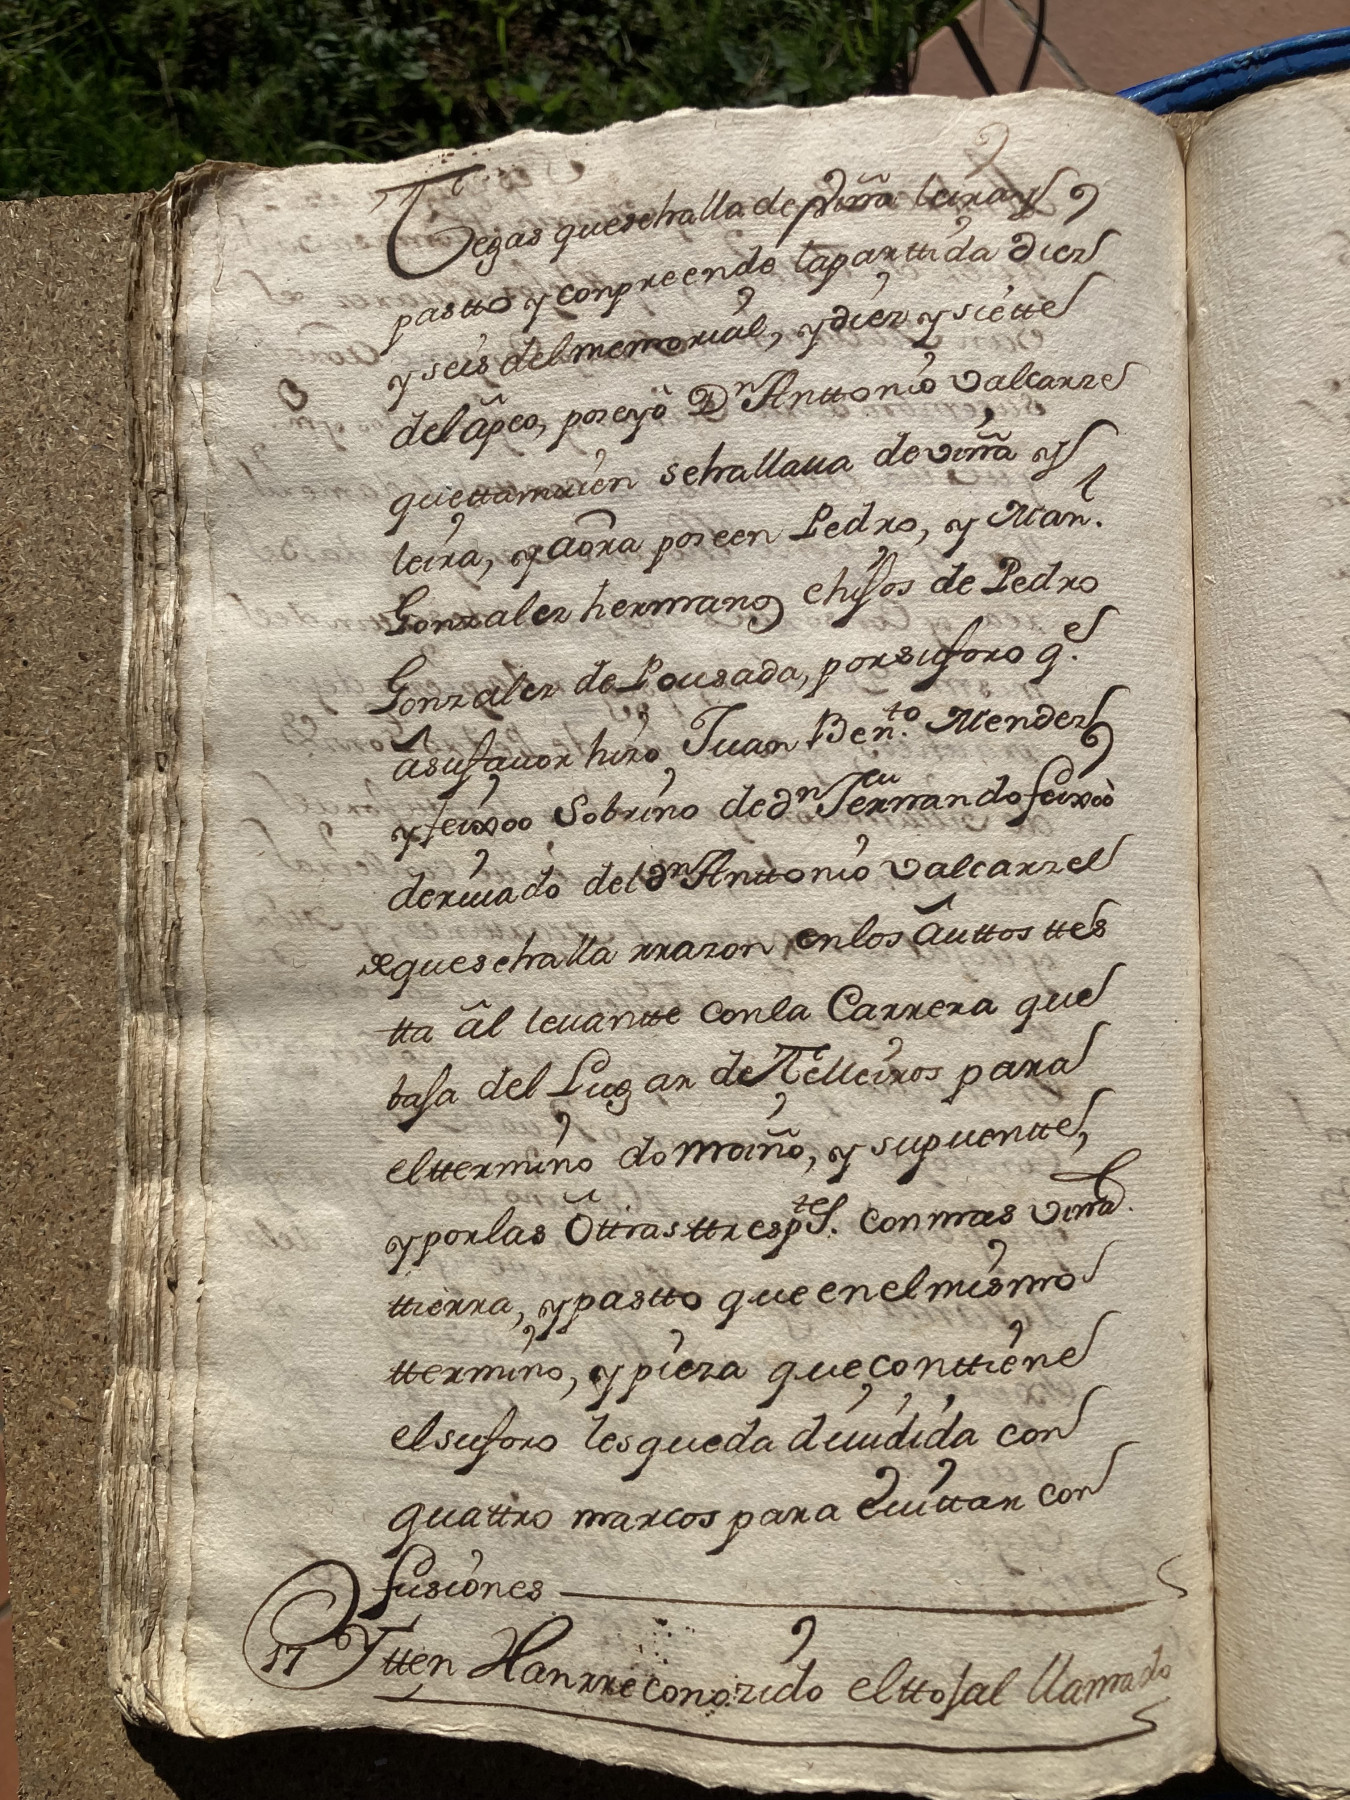 Tegas que se halla de viña leira y
pastto y conpreende la parttida diez
y seis del memorial, y diez y siette
del apeo, poseyò Dn Anttonio Valcarze
que ttamvien se hallaua de viña y
leira, y aôra poseen Pedro, y Man.l
Gonzalez hermanos e hijos de Pedro
Gonzalez de Pousada, por su foro q.e
a su fauor hizo Juan Ben.to Mendez
y feixoo Sobrino de dn Fernando feixoò
deriuado del dn Anttonio Valcarzel
de que se halla rrazon en los âuttos ttes
tta âl leuantte con la Carrera que
baja del Lugar de Telleiros para
el ttermino do moiño, y su puentte,
y por las ôttras ttres p.tes con mas viña
ttierra, y pastto que en el mismo
ttermino, y pieza que conttiene
el su foro les queda diuidida con
quattro marcos para euittar con
fusiones
17 Ytten Han rreconozido el ttojal llamado